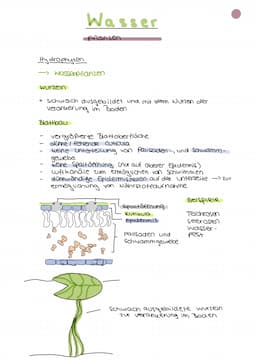 Wasser
pflanzen
Hydrophyten
→ Wasserpflanzen
Wurzeln:
• schwach ausgebildet und mit dem
Verankerung im Boden
Blattbau:
- vergrößerte Blattoberfläche
- dünne / fehlende Cuticula
- keine Unterteilung von Palisaden- und Schwamm-
gewebe
- keine Spaltöffnung (nur auf oberer Epidermis)
- Luftkanäle zum ermöglichen von Schwimmen
- dünnwandige Epidermiszellen auf der Unterseite → zur
ermöglichung von Nährstoffaufnahme
Spaltöffnung
Kutikula
Epidermis
Palisaden und
Schwammgewebe
Beispiele
Teichrosen
Seerosen
Wasser-
pest
schwach ausgebildete Wurzeln
zur Verankerung im Boden